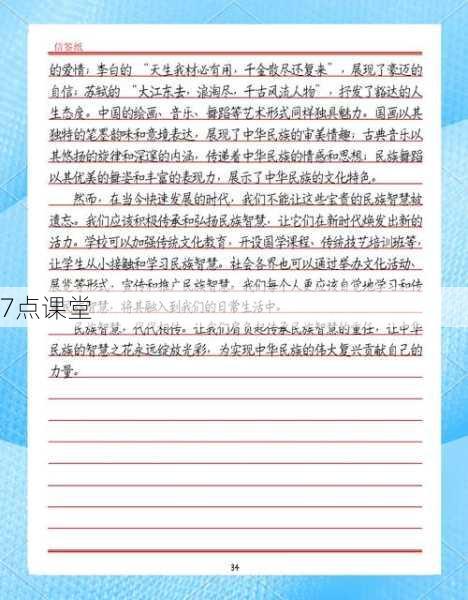 信签纸
的爱情；李白的“天生我材必有用，千金散尽还复来”，展现了豪迈的
自信；苏轼的“大江东去，浪淘尽，千古风流人物”，抒发了豁达的人
生态度。中国的绘画、音乐、舞蹈等艺术形式同样独具魅力。国画以其
独特的笔墨韵味和意境表达，展现了中华民族的审美情趣；古典音乐以
其悠扬的旋律和深邃的内涵，传递着中华民族的情感和思想；民族舞蹈
以其优美的舞姿和丰富的表现力，展示了中华民族的文化特色。
然而，在当今快速发展的时代，我们不能让这些宝贵的民族智慧被
遗忘。我们应该积极传承和弘扬民族智慧，让它们在新时代焕发出新的
活力。学校可以加强传统文化教育，开设国学课程、传统技艺培训班等，
让学生从小接触和学习民族智慧。社会各界也可以通过举办文化活动、
展览等形式，宣传和推广民族智慧。我们每个人更应该自觉地学习和传
智慧，将其融入到我们的日常生活中。
7点课堂
民族智慧，代代相传。让我们肩负起传承民族智慧的重任，让中华
民族的智慧之花永远绽放光彩，为实现中华民族的伟大复兴贡献自己的
力量。
34